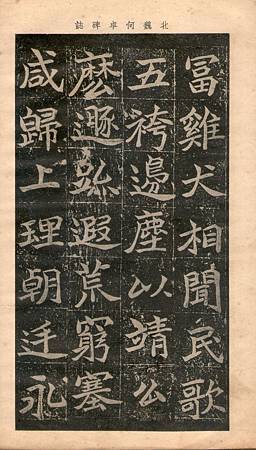 北魏何碑誌
冨雞犬相聞民歌
五袴邊塵以靖公
麽遯跡遐荒窮塞
咸歸上理朝廷永